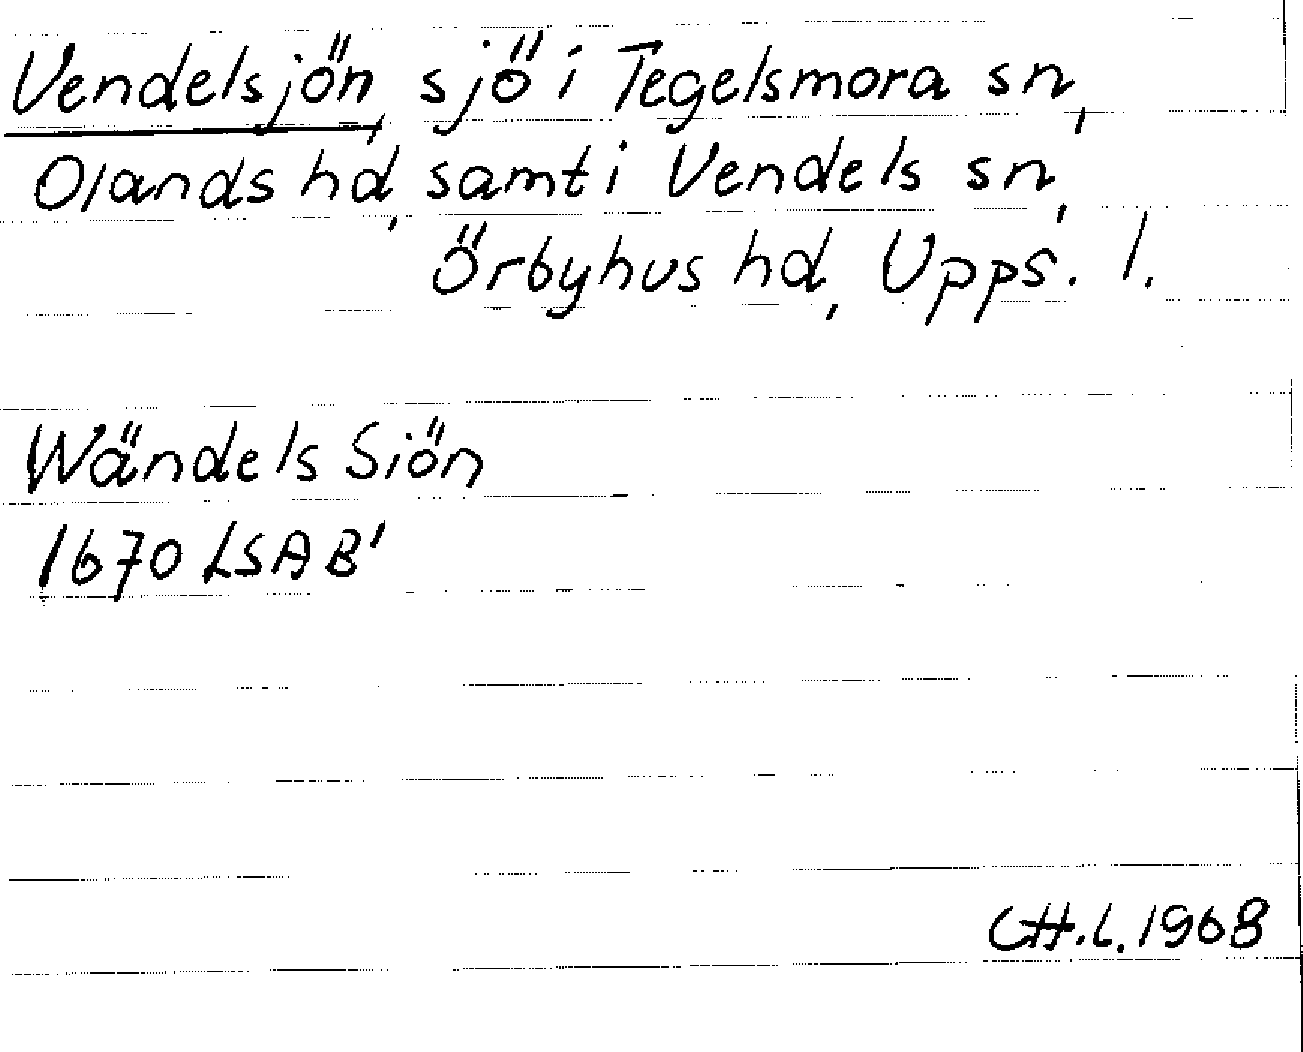 Vendelsjön, sjö i Tegelsmora sn,
Olands hd, samt i Vendels sn,
Örbyhus hd, Upps. l.
Wändels Siön
1670 LSA B'
CH.L. 1968